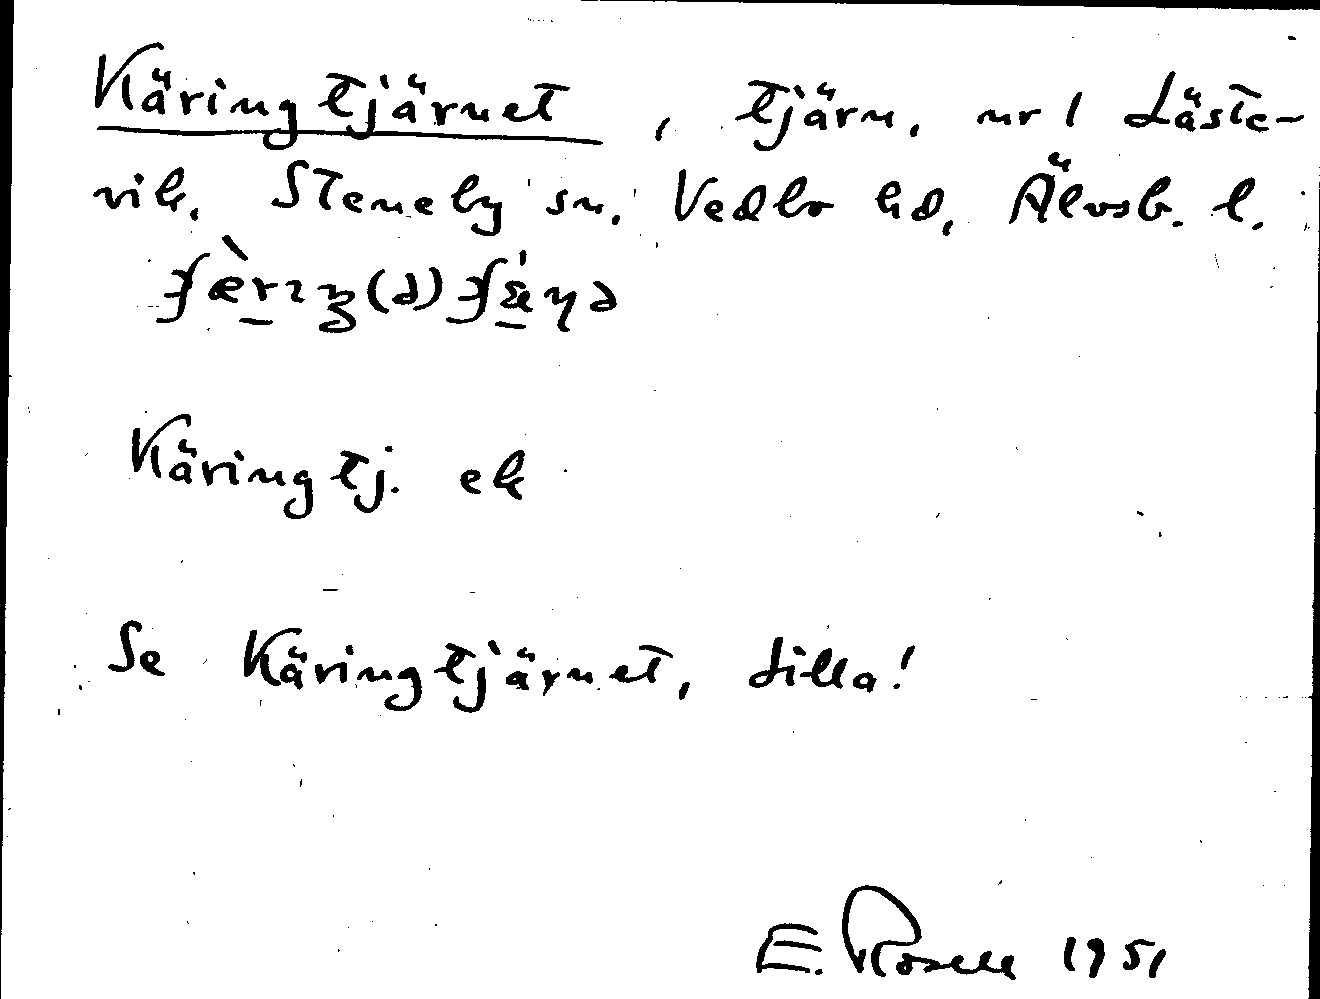 Käringtjärnet, tjärn, nr 1 Läste-
vik, Steneby sn. Vedbo hd, Älvsb. l.
Käringtj. ek
Se Käringtjärnet, Lilla!
E. Rosell 1951